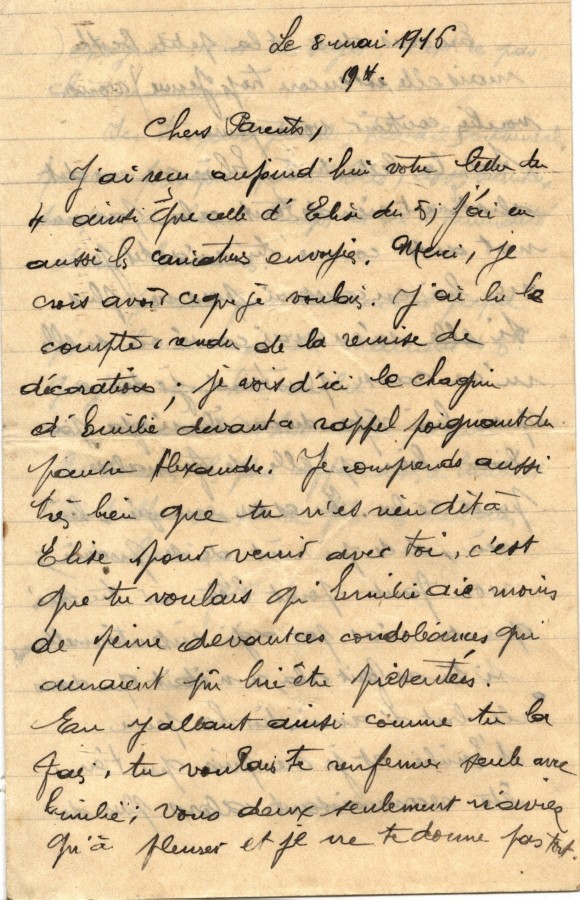 Le 8 mai 1916
19H.
Chers Parents,
J'ai reçu aujourd'hui votre lettre du
4 ainsi que celle d'Elise du 5; j'ai eu
aussi les caricatures envoyées. Merci, je
crois avoir ce que je voulais. J'ai lu le
compte-rendu de la remise de
décorations; je vois d'ici le chagrin
d'Emilie devant ce rappel poignant du
pauvre Alexandre. Je comprends aussi
très bien que tu n'es rien dit à
Elise pour venir avec toi, c'est
que tu voulais qu'Emilie aie moins
de peine devant ces condoléances qui
auraient pu lui être présentées.
En y allant ainsi comme tu la
fais, tu voulais te renfermer seule avec
Emilie; vous deux seulement n'aviez
qu'à pleurer et je ne te donne pas tort.